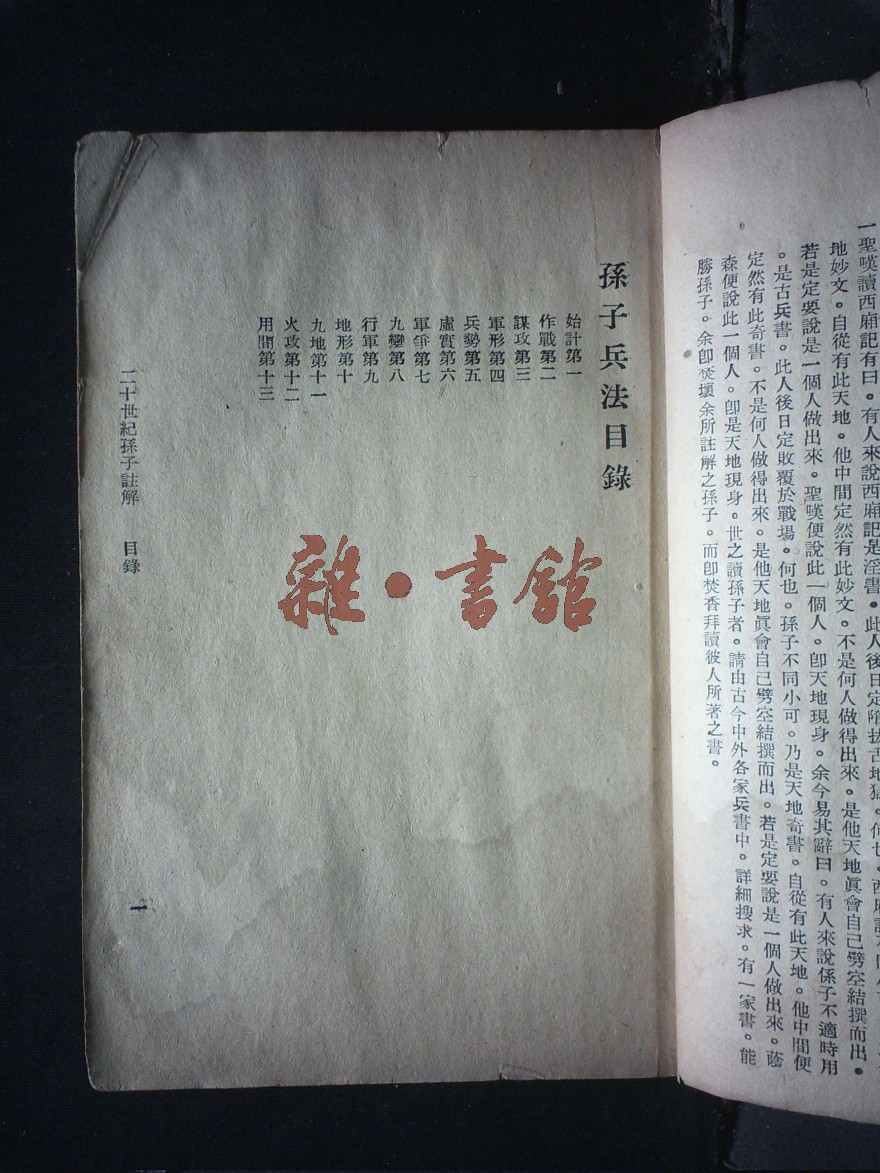 一聖嘆讀西廂記有曰。有人來說西廂記是淫書。此人後日定墮拔舌地獄。何也。西廂記不同小
地妙文。自從有此天地。他中間定然有此妙文。不是何人做得出來。是他天地眞會自己劈空結撰而出。
若是定要說是一個人做出來。聖嘆便說此一個人。卽天地現身。余今易其辭曰。有人來說孫子不適時用
。是古兵書。此人後日定敗覆於戰場。何也。孫子不同小可。乃是天地奇書。自從有此天地。他中間便
定然有此奇書。不是何人做得出來。是他天地眞會自己劈空結撰而出。若是定要說是一個人做出來。蔭
森便說此一個人。卽是天地現身。世之讀孫子者。請由古今中外各家兵書中。詳細搜求。有一家書。能
勝孫子。余卽焚壞余所註解之孫子。而卽焚香拜讀彼人所著之書。
孫子兵法目錄
始計第一
作戰第二
謀攻第三
軍形第四
兵勢第五
虛實第六
軍爭第七
九變第八
行軍第九
地形第十
九地第十一
火攻第十二
用間第十三
二十世紀孫子註解 目錄
一
雜·書館